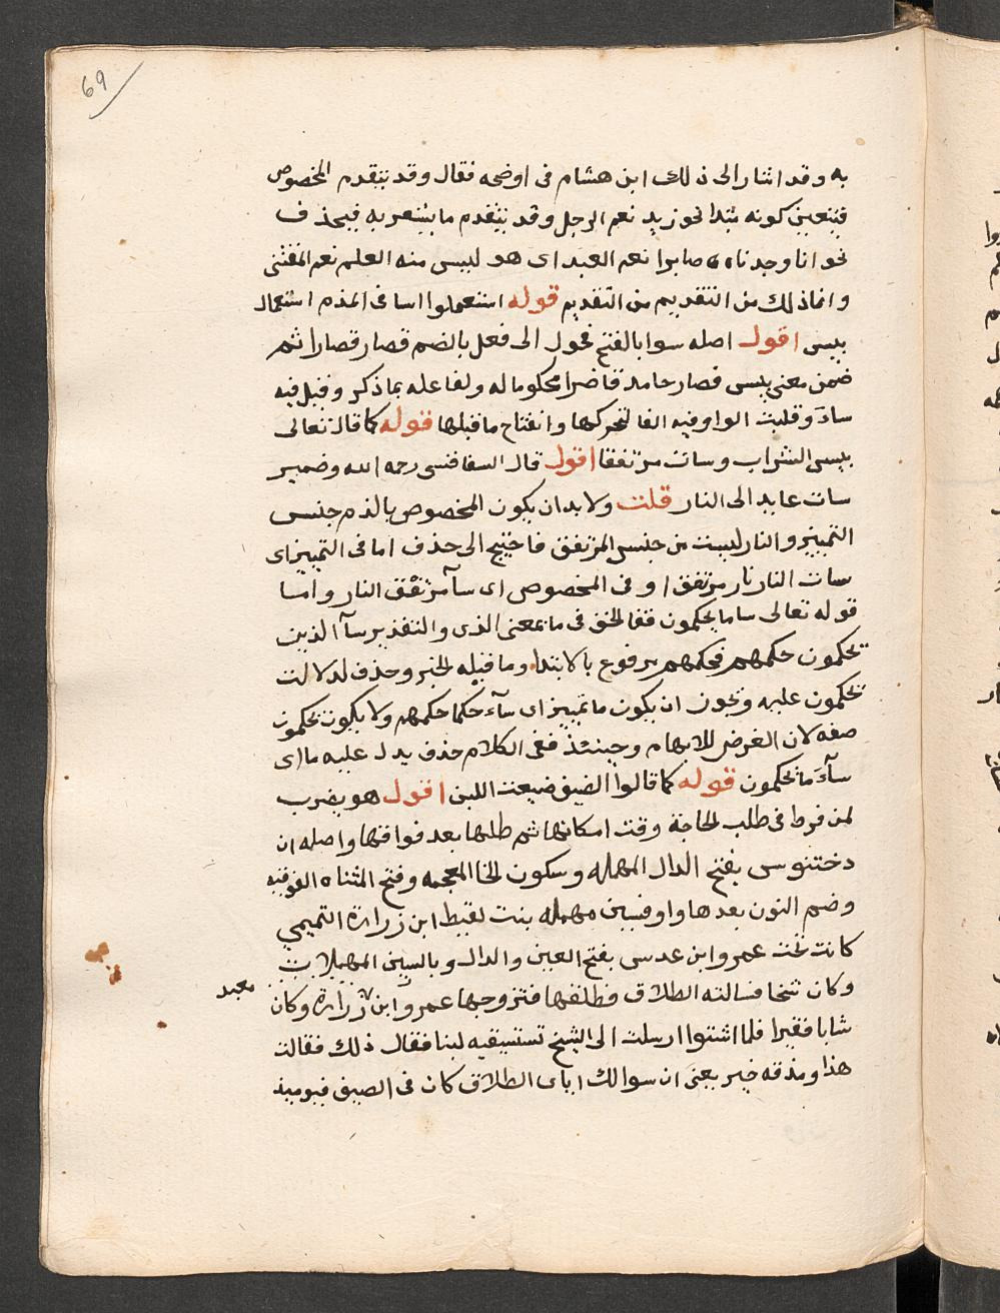 69
به وقد اشار الى ذلك ابن هشام فى اوضحه فقال وقد يتقدم المخصوص
فيتعين كونه مبتدا نحو زيد نعم الرجل وقد يتقدم ما يشعر به فيحذف
نحو انا وجدناه صابرا نعم العبد اى هو ليس منه العلم نعم المقتنى
وانما ذلك من التقديم من التقديم قوله استعملوا سا فى الذم استعمال
بيس اقول اصله سوا بالفتح فحول الى فعل بالضم فصار قصارا ثم
ضمن معنى بيس فصار جامدا قاصرا محكوما له ولفاعله بما ذكر وقيل فيه
ساء وقلبت الواو فيه الفا لتحركها وانفتاح ما قبلها قوله كما قال تعالى
بيس الشراب وسات مرتفقا اقول قال السفاقسى رحمه الله وضمير
سات عايد الى النار قلت ولا بد ان يكون المخصوص بالذم جنس
التمييز والنار ليست من جنس المرتفق فاحتيج الى حذف اما فى التمييز اى
سات النار نار مرتفق او فى المخصوص اى سآ مرتفق النار واما
قوله تعالى سا ما يحكمون فقال فى ما بمعنى الذى والتقدير سآ الذين
يحكمون حكمهم فحكمهم مرفوع بالابتدا وما قبله الخبر وحذف لدلالت
يحكمون عليه ويجوز ان يكون ما تمييز اى سآء حكما حكمهم ولا يكون يحكمون
صفه لان الغرض للابهام وحينئذ ففى الكلام حذف يدل عليه ما اى
سآء ما يحكمون قوله كما قالوا الصيف ضيعت اللبن اقول هو يضرب
لمن فرط فى طلب الحاجة وقت امكانها ثم طلبها بعد فواتها واصله ان
دختنوس بفتح الدال المهمله وسكون الخا المعجمه وفتح المثناه الفوقيه
وضم النون بعدها واو فسين مهمله بنت لقيط ابن زرارة التميمي
كانت تحت عمرو ابن عدس بفتح العين والدال وبالسين المهملات
وكان شيخا فسالته الطلاق فطلقها فتزوجها عمرو ابن زرارة وكان
معبد
شابا فقيرا فلما اشتوا ارسلت الى الشيخ تستسقيه لبنا فقال ذلك فقالت
هذا ومذقه خير يعنى ان سوالك اياى الطلاق كان فى الصيف فيوميذ